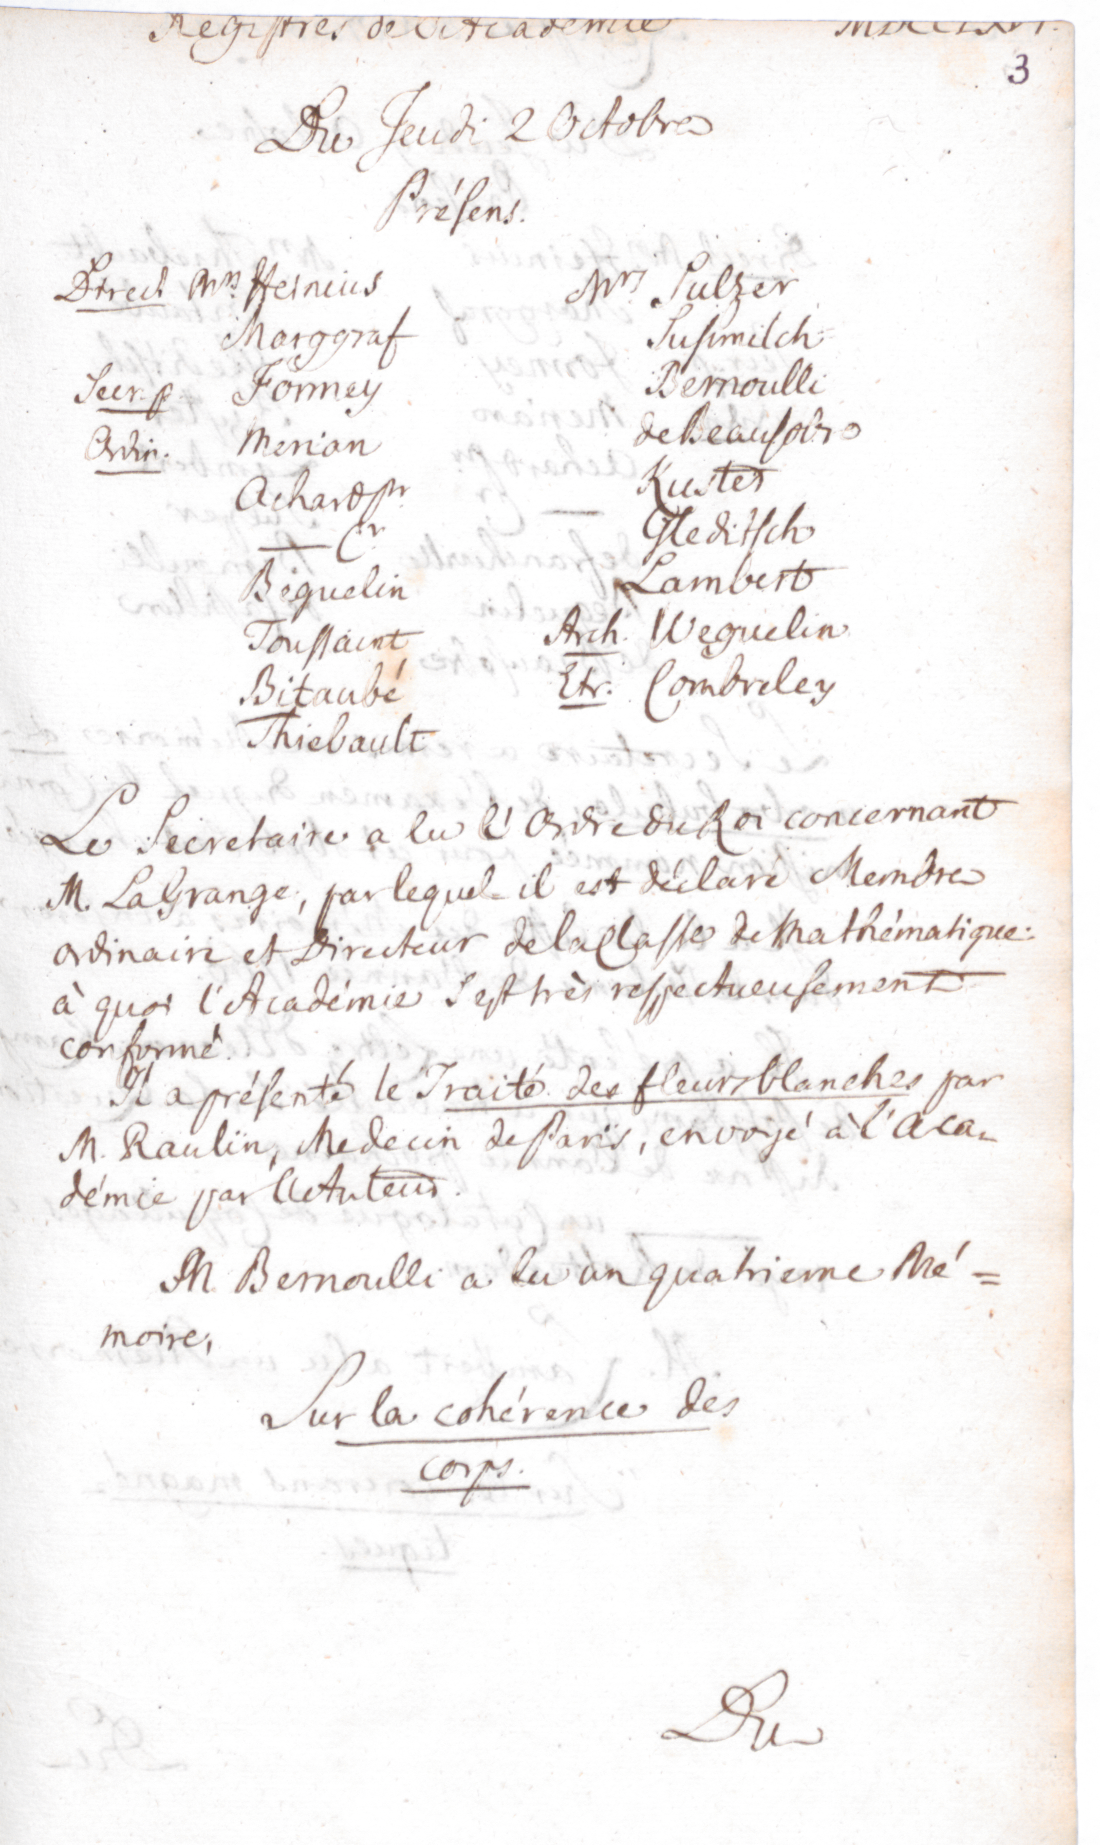 Registres de l'Academie MDCCLXVI.
3
Du Jeudi 2 Octobre
Présens.
Direct. Mrs. Heinius
Marggraf
Secr. p. Formey
Ordin. Merian
Achard pr.
— Cr.
Béguelin
Toussaint
Bitaubé
Thiebault
Mrs Sulzer
Susmilch
Bernoulli
de Beausobre
Kuster
Gleditsch
Lambert
Arch. Weguelin
Etr. Combreley
Le Secretaire a lu l'Ordre du Roi concernant
M. LaGrange, par lequel il est déclaré Membre
ordinaire et Directeur de la Classe de Mathématique:
à quoi l'Académie s'est très respectueusement
conformé.
Il a présenté le Traité des fleurs blanches par
M. Raulin, Medecin de Paris, envoyé à l'Aca-
démie par l'Auteur.
M. Bernoulli a lu un quatrieme Mé=
moire,
Sur la cohérence des
corps.
Du